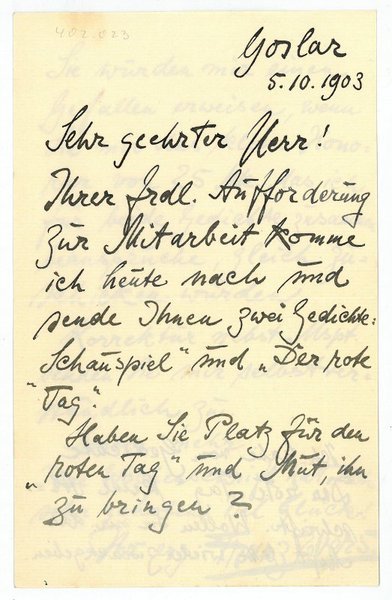 402.023
Goslar
5.10.1903
Sehr geehrter Herr!
Ihrer frdl. Aufforderung
zur Mitarbeit komme
ich heute nach und
sende Ihnen zwei Gedichte:
"Schauspiel" und „Der rote
Tag".
Haben Sie Platz für den
„roten Tag" und Mut, ihn
zu bringen?